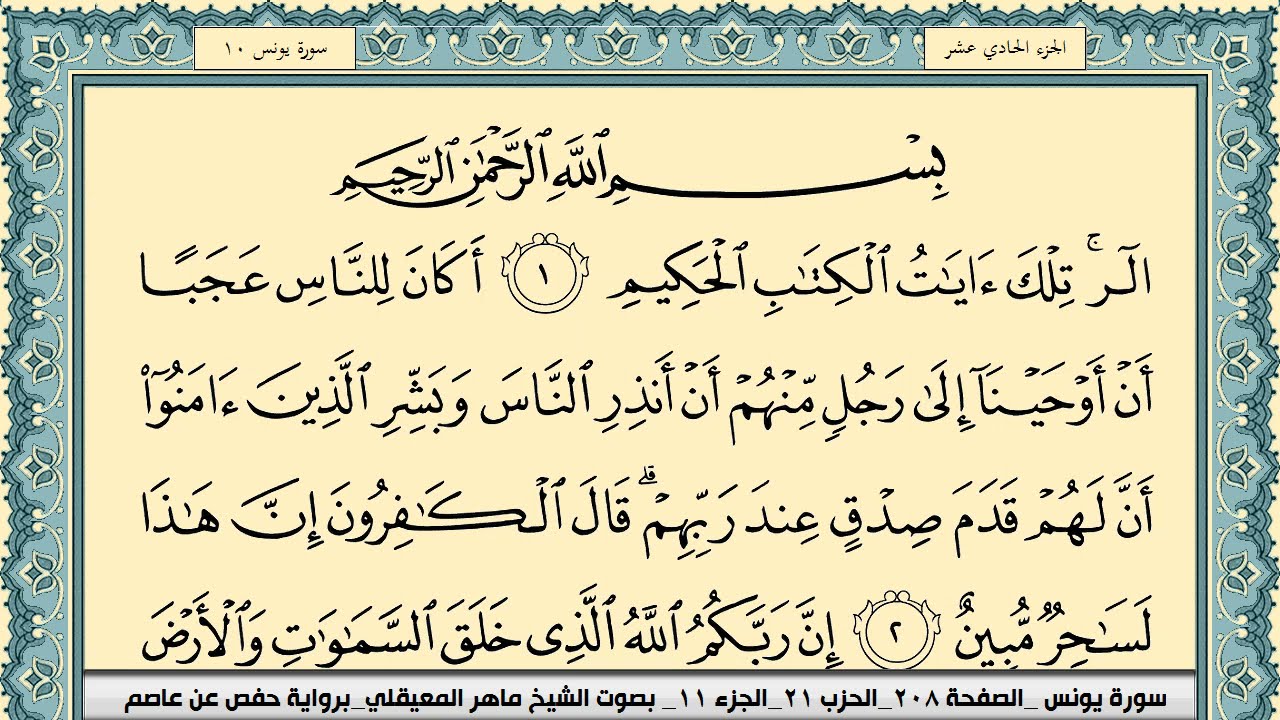 الجزء الحادي عشر
سورة يونس ١٠
بِسْمِ ٱللَّهِ ٱلرَّحْمَٰنِ ٱلرَّحِيمِ
الٓرۚ تِلْكَ ءَايَٰتُ ٱلْكِتَٰبِ ٱلْحَكِيمِ ١ أَكَانَ لِلنَّاسِ عَجَبًا
أَنْ أَوْحَيْنَآ إِلَىٰ رَجُلٍ مِّنْهُمْ أَنْ أَنذِرِ ٱلنَّاسَ وَبَشِّرِ ٱلَّذِينَ ءَامَنُوٓا۟
أَنَّ لَهُمْ قَدَمَ صِدْقٍ عِندَ رَبِّهِمْۗ قَالَ ٱلْكَٰفِرُونَ إِنَّ هَٰذَا
لَسَٰحِرٌ مُّبِينٌ ٢ إِنَّ رَبَّكُمُ ٱللَّهُ ٱلَّذِى خَلَقَ ٱلسَّمَٰوَٰتِ وَٱلْأَرْضَ
سورة يونس _الصفحة ٢٠٨_الحزب ٢١_الجزء ١١_ بصوت الشيخ ماهر المعيقلي_برواية حفص عن عاصم